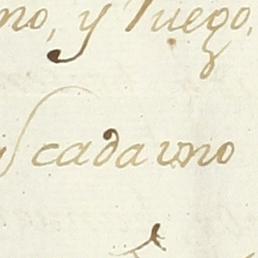 no, y luego,
cada uno